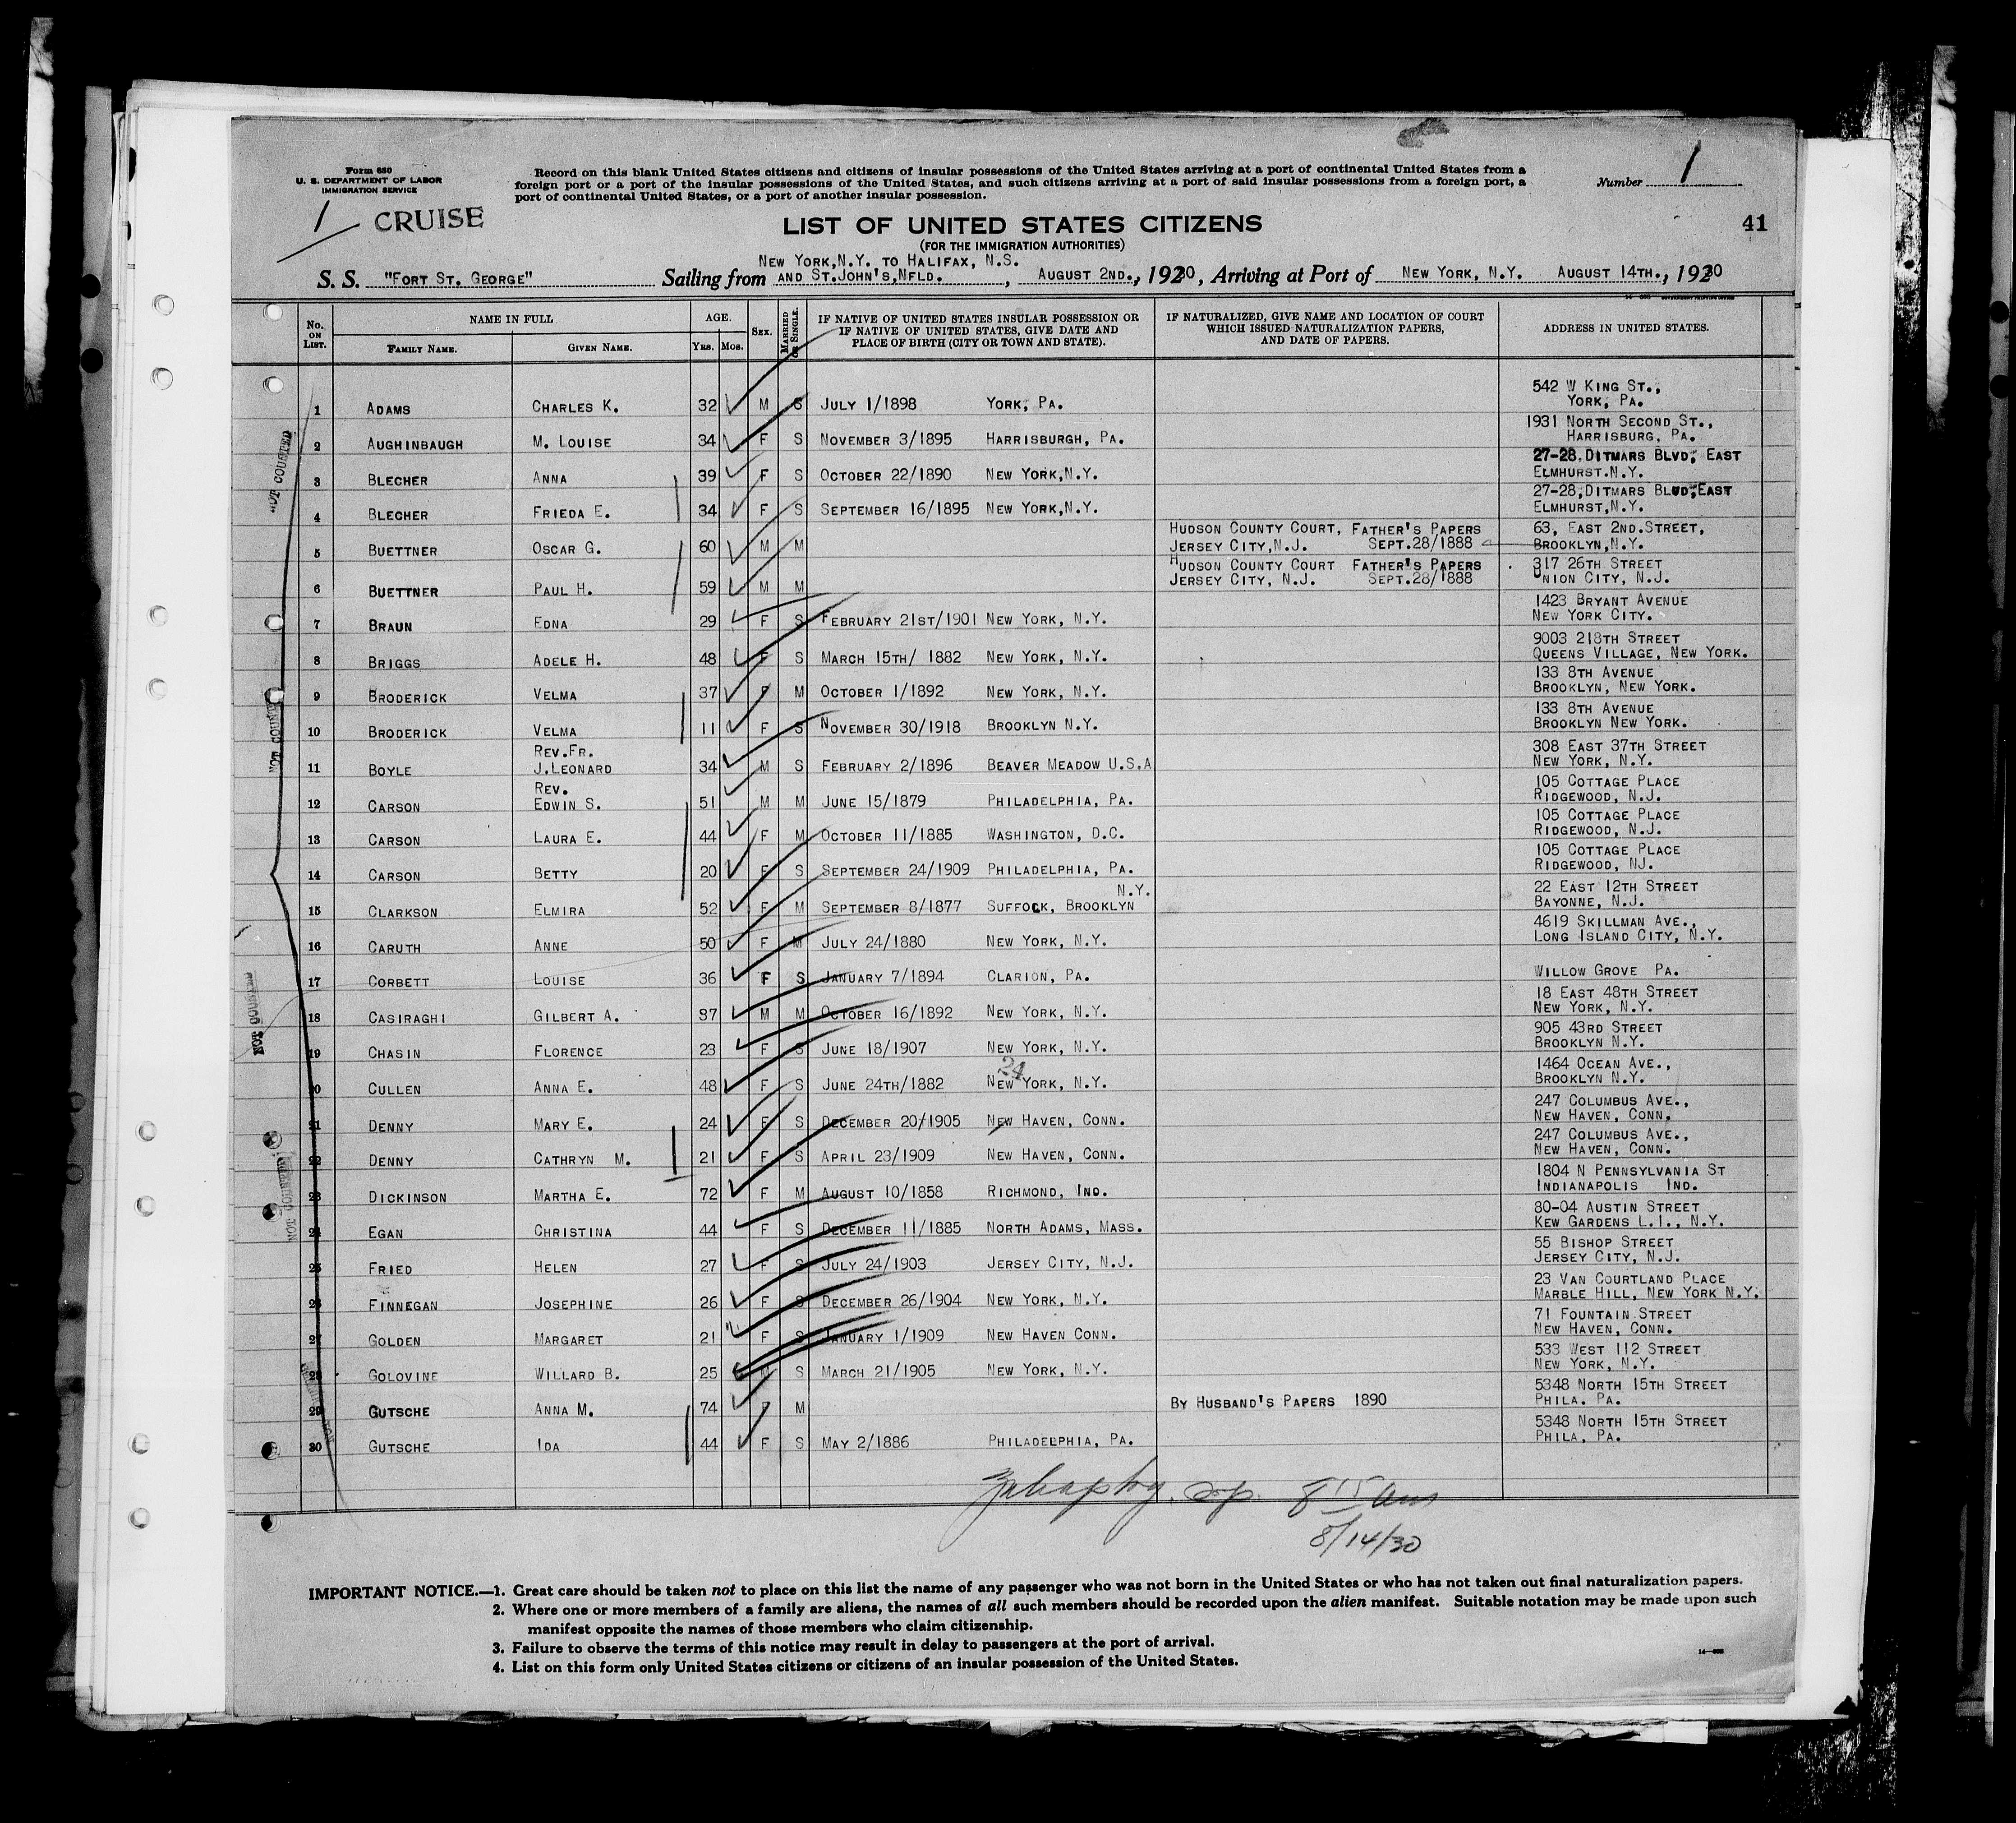 Form 630
U. S. DEPARTMENT OF LABOR
IMMIGRATION SERVICE
1 CRUISE
Record on this blank United States citizens and citizens of insular possessions of the United States arriving at a port of continental United States from a
foreign port or a port of the insular possessions of the United States, and such citizens arriving at a port of said insular possessions from a foreign port, a
port of continental United States, or a port of another insular possession.
Number 1
LIST OF UNITED STATES CITIZENS
41
(FOR THE IMMIGRATION AUTHORITIES)
NEW YORK,N.Y. TO HALIFAX, N.S.
S. S. "FORT ST. GEORGE" Sailing from AND ST.JOHN'S,NFLD. , AUGUST 2ND., 1930, Arriving at Port of NEW YORK, N.Y. AUGUST 14TH., 1930
No. ON LIST. NAME IN FULL FAMILY NAME. GIVEN NAME. AGE. YRS. MOS. SEX. MARRIED OR SINGLE.
IF NATIVE OF UNITED STATES INSULAR POSSESSION OR
IF NATIVE OF UNITED STATES, GIVE DATE AND
PLACE OF BIRTH (CITY OR TOWN AND STATE).
IF NATURALIZED, GIVE NAME AND LOCATION OF COURT
WHICH ISSUED NATURALIZATION PAPERS,
AND DATE OF PAPERS.
ADDRESS IN UNITED STATES.
542 W KING ST.,
1 ADAMS CHARLES K. 32 M S JULY 1/1898 YORK, PA. YORK, PA.
1931 NORTH SECOND ST.,
2 AUGHINBAUGH M. LOUISE 34 F S NOVEMBER 3/1895 HARRISBURGH, PA. HARRISBURG, PA.
27-28,DITMARS BLVD, EAST
3 BLECHER ANNA 39 F S OCTOBER 22/1890 NEW YORK,N.Y. ELMHURST.N.Y.
27-28,DITMARS BLUD,EAST
4 BLECHER FRIEDA E. 34 F S SEPTEMBER 16/1895 NEW YORK,N.Y. ELMHURST,N.Y.
HUDSON COUNTY COURT, FATHER'S PAPERS 63, EAST 2ND.STREET,
5 BUETTNER OSCAR G. 60 M M JERSEY CITY,N.J. SEPT.28/1888 BROOKLYN,N.Y.
HUDSON COUNTY COURT FATHER'S PAPERS 317 26TH STREET
6 BUETTNER PAUL H. 59 M M JERSEY CITY, N.J. SEPT.28/1888 UNION CITY, N.J.
1423 BRYANT AVENUE
7 BRAUN EDNA 29 F S FEBRUARY 21ST/1901 NEW YORK, N.Y. NEW YORK CITY.
9003 218TH STREET
8 BRIGGS ADELE H. 48 F S MARCH 15TH/ 1882 NEW YORK, N.Y. QUEENS VILLAGE, NEW YORK.
133 8TH AVENUE
9 BRODERICK VELMA 37 F M OCTOBER 1/1892 NEW YORK, N.Y. BROOKLYN, NEW YORK.
133 8TH AVENUE
10 BRODERICK VELMA 11 F S NOVEMBER 30/1918 BROOKLYN N.Y. BROOKLYN NEW YORK.
REV.FR. 308 EAST 37TH STREET
11 BOYLE J.LEONARD 34 M S FEBRUARY 2/1896 BEAVER MEADOW U.S.A NEW YORK, N.Y.
REV. 105 COTTAGE PLACE
12 CARSON EDWIN S. 51 M M JUNE 15/1879 PHILADELPHIA, PA. RIDGEWOOD, N.J.
105 COTTAGE PLACE
13 CARSON LAURA E. 44 F M OCTOBER 11/1885 WASHINGTON, D.C. RIDGEWOOD, N.J.
105 COTTAGE PLACE
14 CARSON BETTY 20 F S SEPTEMBER 24/1909 PHILADELPHIA, PA. RIDGEWOOD, NJ.
N.Y. 22 EAST 12TH STREET
15 CLARKSON ELMIRA 52 F M SEPTEMBER 8/1877 SUFFOLK, BROOKLYN BAYONNE, N.J.
4619 SKILLMAN AVE.,
16 CARUTH ANNE 50 F M JULY 24/1880 NEW YORK, N.Y. LONG ISLAND CITY, N.Y.
17 CORBETT LOUISE 36 F S JANUARY 7/1894 CLARION, PA. WILLOW GROVE PA.
18 EAST 48TH STREET
18 CASIRAGHI GILBERT A. 37 M M OCTOBER 16/1892 NEW YORK, N.Y. NEW YORK, N.Y.
905 43RD STREET
19 CHASIN FLORENCE 23 F S JUNE 18/1907 NEW YORK, N.Y. BROOKLYN N.Y.
24 1464 OCEAN AVE.,
20 CULLEN ANNA E. 48 F S JUNE 24TH/1882 NEW YORK, N.Y. BROOKLYN N.Y.
247 COLUMBUS AVE.,
21 DENNY MARY E. 24 F S DECEMBER 20/1905 NEW HAVEN, CONN. NEW HAVEN, CONN.
247 COLUMBUS AVE.,
22 DENNY CATHRYN M. 21 F S APRIL 23/1909 NEW HAVEN, CONN. NEW HAVEN, CONN.
1804 N PENNSYLVANIA ST
23 DICKINSON MARTHA E. 72 F M AUGUST 10/1858 RICHMOND, IND. INDIANAPOLIS IND.
80-04 AUSTIN STREET
24 EGAN CHRISTINA 44 F S DECEMBER 11/1885 NORTH ADAMS, MASS. KEW GARDENS L.I., N.Y.
55 BISHOP STREET
25 FRIED HELEN 27 F S JULY 24/1903 JERSEY CITY, N.J. JERSEY CITY, N.J.
23 VAN COURTLAND PLACE
26 FINNEGAN JOSEPHINE 26 F S DECEMBER 26/1904 NEW YORK, N.Y. MARBLE HILL, NEW YORK N.Y.
71 FOUNTAIN STREET
27 GOLDEN MARGARET 21 F S JANUARY 1/1909 NEW HAVEN CONN. NEW HAVEN, CONN.
533 WEST 112 STREET
28 GOLOVINE WILLARD B. 25 M S MARCH 21/1905 NEW YORK, N.Y. NEW YORK, N.Y.
5348 NORTH 15TH STREET
29 GUTSCHE ANNA M. 74 F M BY HUSBAND'S PAPERS 1890 PHILA. PA.
5348 NORTH 15TH STREET
30 GUTSCHE IDA 44 F S MAY 2/1886 PHILADELPHIA, PA. PHILA, PA.
NOT COUNTED
NOT COUNTED
NOT COUNTED
NOT COUNTED
8 15 am
8/14/30
IMPORTANT NOTICE.—1. Great care should be taken not to place on this list the name of any passenger who was not born in the United States or who has not taken out final naturalization papers.
2. Where one or more members of a family are aliens, the names of all such members should be recorded upon the alien manifest. Suitable notation may be made upon such
manifest opposite the names of those members who claim citizenship.
3. Failure to observe the terms of this notice may result in delay to passengers at the port of arrival.
4. List on this form only United States citizens or citizens of an insular possession of the United States.